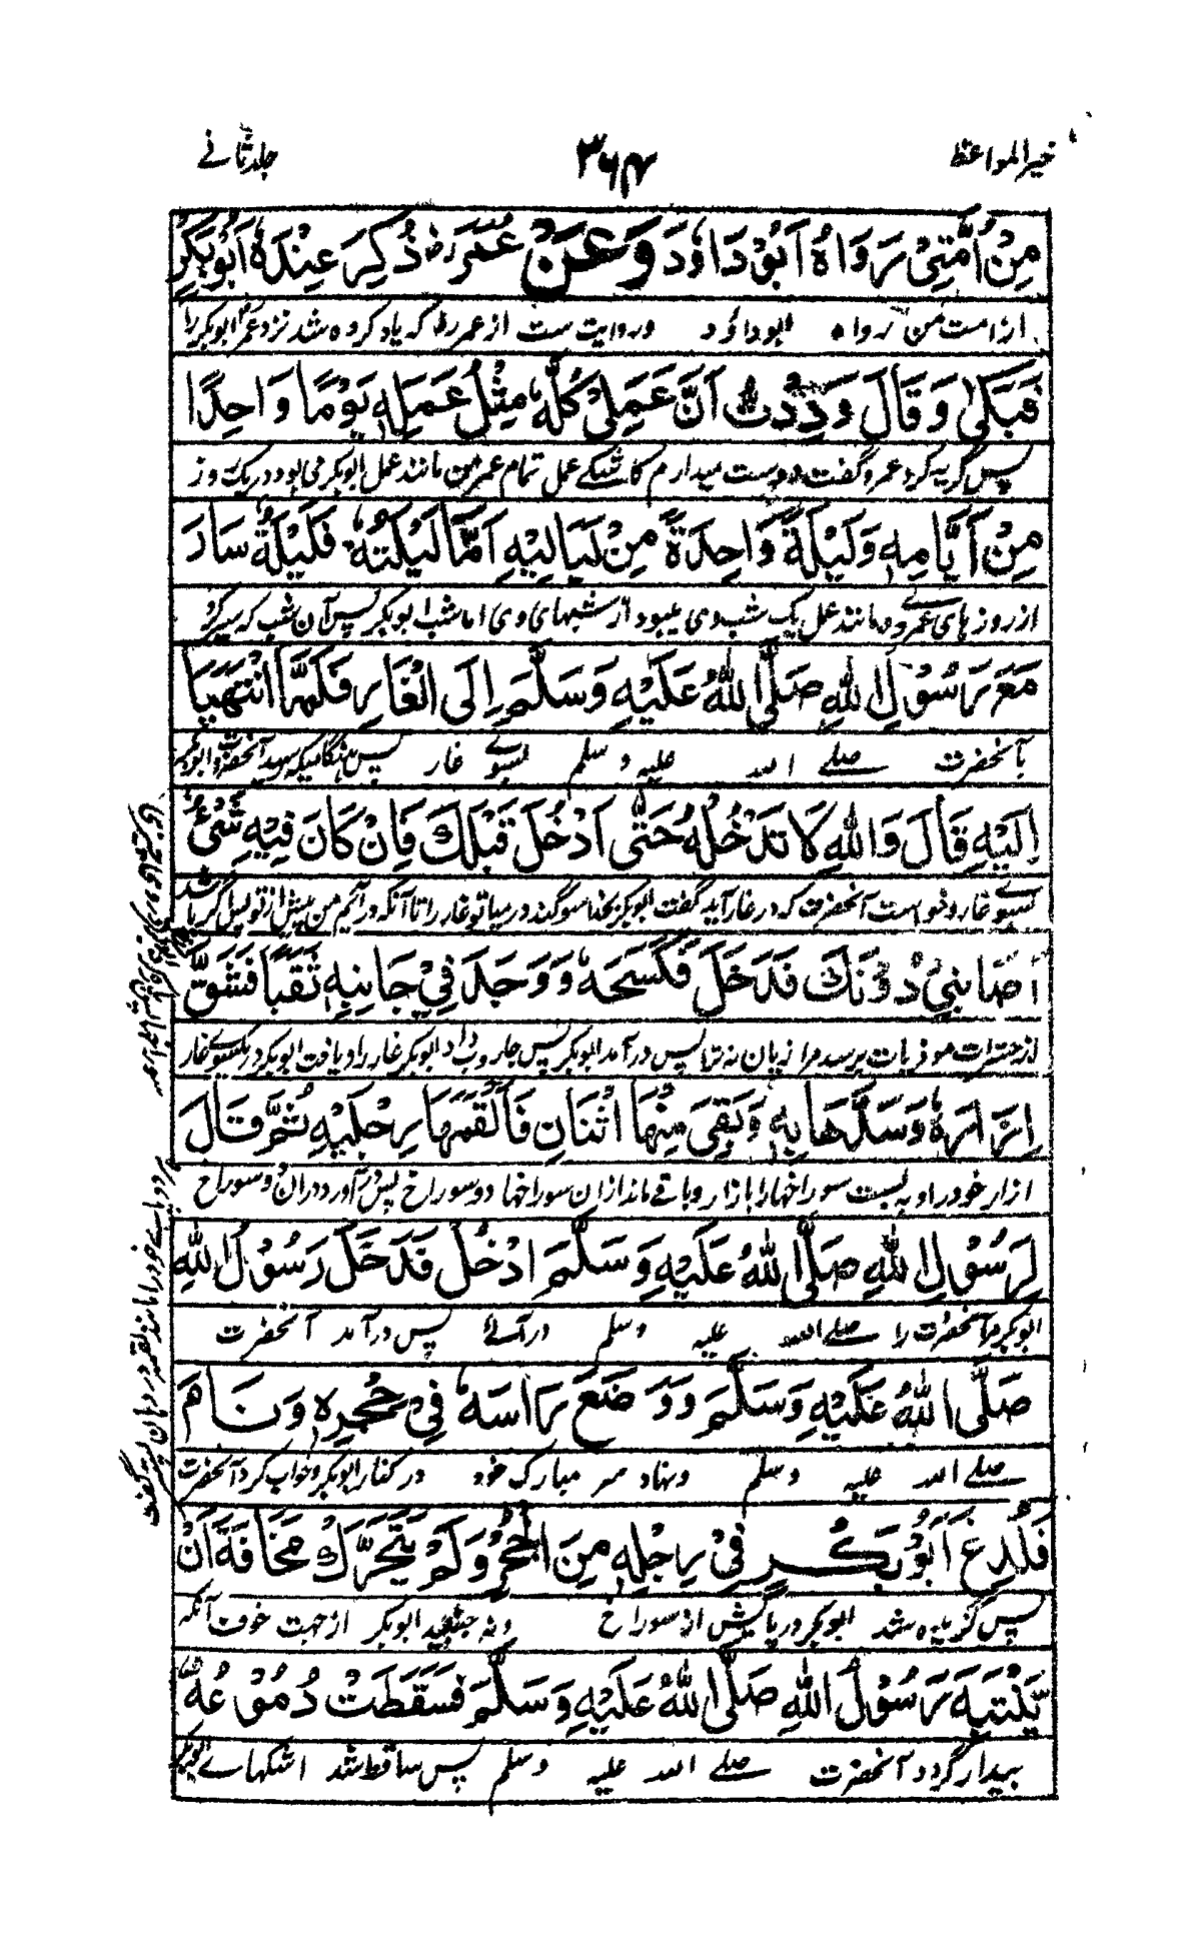 خیر المواعظ
۳۶۴
جلد ثانے
مِنْ اُمَّتِیْ رَوَاہُ اَبُوْ دَاوٗدَ وَعَنْ عُمَرَ رض ذُکِرَ عِنْدَہٗ اَبُوْبَکْرٍ
از امت من رواہ ابوداؤد وروایت ست از عمر رض کہ یاد کردہ شد نزد عمر ابوبکر را
فَبَکٰی وَقَالَ وَدِدْتُ اَنَّ عَمَلِیْ کُلَّہٗ مِثْلُ عَمَلِہٖ یَوْمًا وَاحِدًا
پس گریہ کرد عمر وگفت دوست میدارم کاشکے عمل تمام عمر من مانند عمل ابوبکر می بود در یک روز
مِنْ اَیَّامِہٖ وَلَیْلَۃً وَاحِدَۃً مِنْ لَیَالِیْہِ اَمَّا لَیْلَتُہٗ فَلَیْلَۃٌ سَارَ
از روز ہای عمر وے ومانند عمل یک شب وی میبود از شبہای وی اما شب ابوبکر پس آن شب کہ سیر کرد
مَعَ رَسُوْلِ اللہِ صَلَّی اللہُ عَلَیْہِ وَسَلَّمَ اِلَی الْغَارِ فَلَمَّا انْتَہَیَا
بآنحضرت صلے اللہ علیہ وسلم بسوے غار پس ہنگامیکہ رسید آنحضرت وابوبکر
اِلَیْہِ قَالَ وَاللہِ لَا تَدْخُلُہٗ حَتّٰی اَدْخُلَ قَبْلَکَ فَاِنْ کَانَ فِیْہِ شَیْءٌ
بسوے غار وخواست آنحضرت کہ در غار آید گفت ابوبکر بخدا سوگند در میا تو غار را تا آنکہ در آیم من پیش از تو پس اگر باشد
اَصَابَنِیْ دُوْنَکَ فَدَخَلَ فَکَسَحَہٗ وَوَجَدَ فِیْ جَانِبِہٖ ثَقْبًا فَشَقَّ
از حشرات موذیات برسد مرا زیان نہ ترا پس در آمد ابوبکر پس جاروب داد ابوبکر غار را ویافت ابوبکر در یکسوے غار
اِزَارَہٗ وَسَدَّہَا بِہٖ وَبَقِیَ مِنْہَا اثْنَانِ فَاَلْقَمَہَا رِجْلَیْہِ ثُمَّ قَالَ
ازار خود را وبہ بست سوراخہا را بازار وباقے ماند ازان سوراخہا دو سوراخ پس آورد دران دو سوراخ
لِرَسُوْلِ اللہِ صَلَّی اللہُ عَلَیْہِ وَسَلَّمَ ادْخُلْ فَدَخَلَ رَسُوْلُ اللہِ
ابوبکر مر آنحضرت را صلے اللہ علیہ وسلم درآئے پس درآمد آنحضرت
صَلَّی اللہُ عَلَیْہِ وَسَلَّمَ وَوَضَعَ رَاْسَہٗ فِیْ حُجْرِہٖ وَنَامَ
صلے اللہ علیہ وسلم ونہاد سر مبارک خود در کنار ابوبکر وخواب کرد آنحضرت
فَلُدِغَ اَبُوْبَکْرٍ فِیْ رِجْلِہٖ مِنَ الْجُحْرِ وَلَمْ یَتَحَرَّکْ مَخَافَۃَ اَنْ
پس گزیدہ شد ابوبکر در پایش از سوراخ ونہ جنبید ابوبکر از جہت خوف آنکہ
یَّنْتَبِہَ رَسُوْلُ اللہِ صَلَّی اللہُ عَلَیْہِ وَسَلَّمَ فَسَقَطَتْ دُمُوْعُہٗ
بیدار گردد آنحضرت صلے اللہ علیہ وسلم پس ساقط شد اشکہاے ابوبکر
ہر دو پاے خود را مانند لقمہ در دہان پس گفت